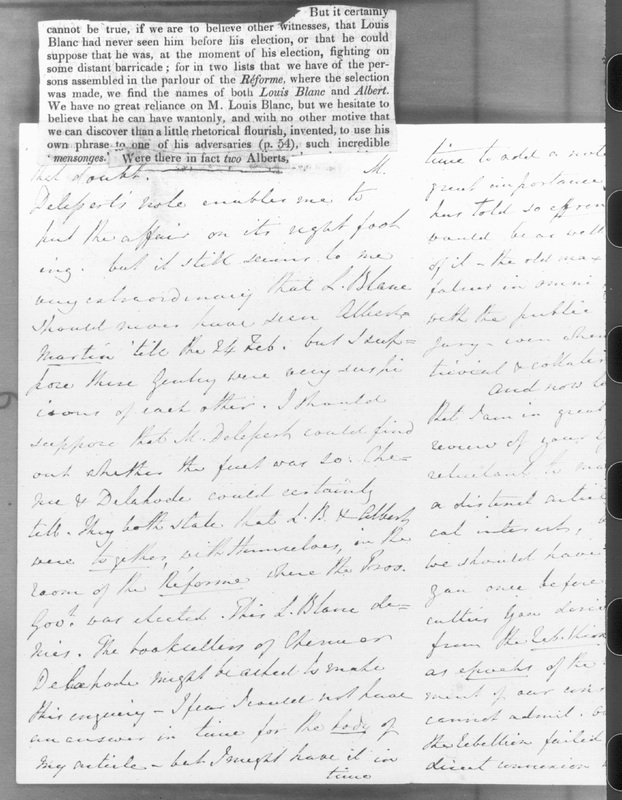 But it certainly
cannot be true, if we are to believe other witnesses, that Louis
Blanc had never seen him before his election, or that he could
suppose that he was, at the moment of his election, fighting on
some distant barricade; for in two lists that we have of the per-
sons assembled in the parlour of the Réforme, where the selection
was made, we find the names of both Louis Blanc and Albert.
We have no great reliance on M. Louis Blanc, but we hesitate to
believe that he can have wantonly, and with no other motive that
we can discover than a little rhetorical flourish, invented, to use his
own phrase to one of his adversaries (p. 54), such incredible
'mensonges.' Were there in fact two Alberts,
doubt. M.
Delesserts note enables me to
put the affair on its right foot
ing. but it still seems to me
very extraordinary that L. Blanc
should never have seen Albert
Martin 'till the 24 Feb. but I sup=
pose these Gentry were very suspi
cious of each other. I should
suppose that M. Delessert could find
out whether the fact was so. Che=
nu & Delahode could certainly
tell. They both state that L. B. & Albert
were together, with themselves, in the
room of the Réforme where the Prov.
Govt. was elected. This L. Blanc de=
nies. The booksellers of Chenu or
Delahode might be asked to make
this enquiry - I fear I could not have
an answer in time for the body of
my article - but I might have it in
time
time to add a note
great importance
has told so
would be as well
of it - the old max
falsus in omni
with the public
Jury - even when
trivial & collater
And now to
that I am in great
review of your
reluctant to ma
a distinct articl
cal interest,
we should have
gan once before
cutting you
from the Rebellion
as epochs of the
ment of our con
cannot admit.
the Rebellion failed
direct connexion